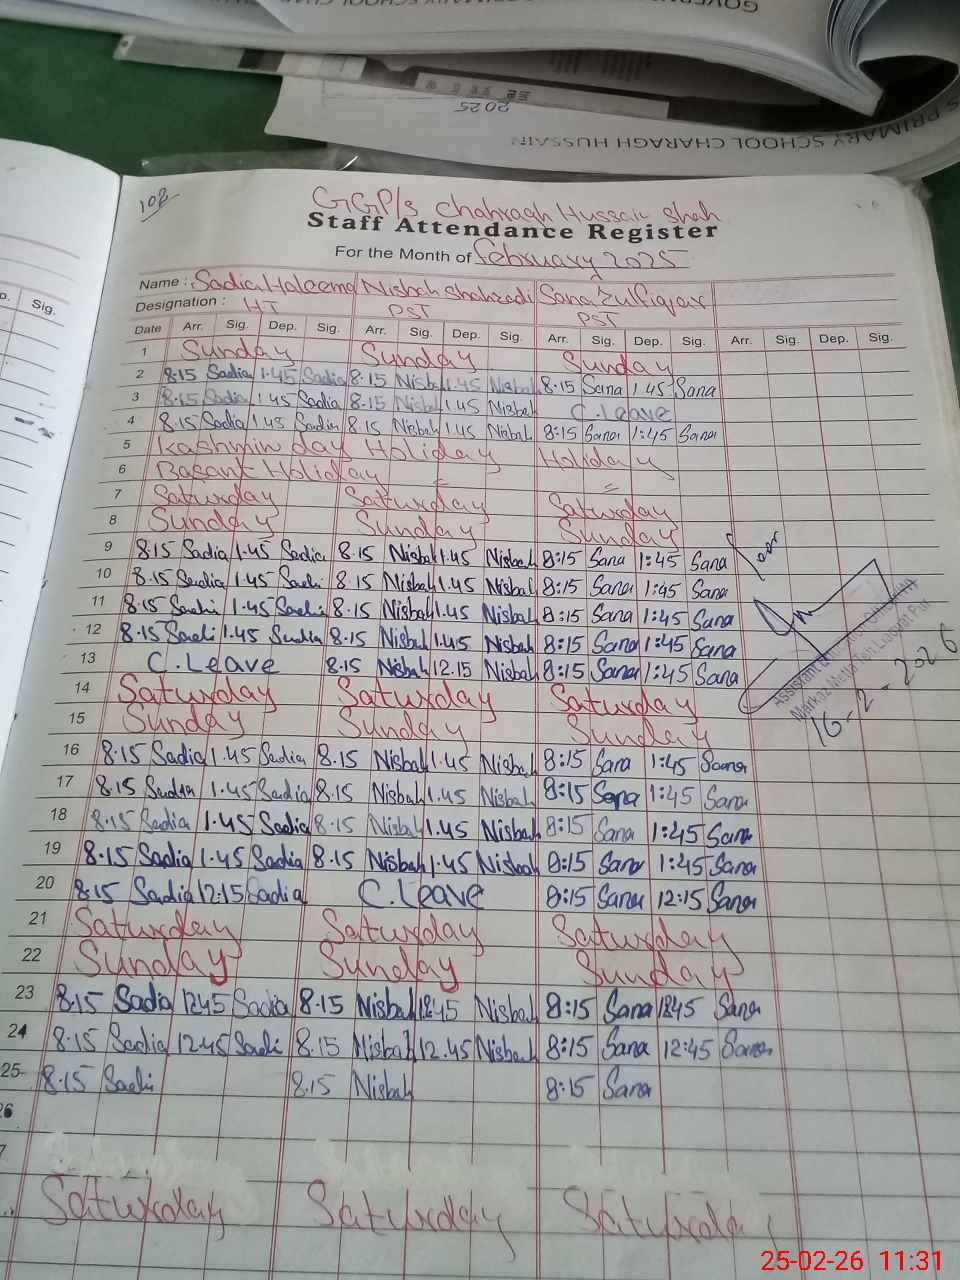 2025
S PRIMARY SCHOOL CHARAGH HUSSAIN
108
GGP/s Chahragh Hussain Shah
Staff Attendance Register
For the Month of February 2025
Name : Sadia Haleema Nisbah Shahzadi Sana Zulfiqar
Designation : HT PST PST
Date Arr. Sig. Dep. Sig. Arr. Sig. Dep. Sig. Arr. Sig. Dep. Sig. Arr. Sig. Dep. Sig.
1 Sunday Sunday Sunday
2 8.15 Sadia 1.45 Sadia 8.15 Nisbah 1.45 Nisbah 8:15 Sana 1:45 Sana
3 8.15 Sadia 1.45 Sadia 8.15 Nisbah 1.45 Nisbah C.Leave
4 8.15 Sadia 1.45 Sadia 8.15 Nisbah 1.45 Nisbah 8:15 Sana 1:45 Sana
5 Kashmir day Holiday Holiday
6 Basant Holiday = =
7 Saturday Saturday Saturday
8 Sunday Sunday Sunday
9 8.15 Sadia 1.45 Sadia 8.15 Nisbah 1.45 Nisbah 8:15 Sana 1:45 Sana
10 8.15 Sadia 1.45 Sadi 8.15 Nisbah 1.45 Nisbah 8:15 Sana 1:45 Sana
11 8.15 Sadi 1.45 Sadi 8.15 Nisbah 1.45 Nisbah 8:15 Sana 1:45 Sana
12 8.15 Sadi 1.45 Sadia 8.15 Nisbah 1.45 Nisbah 8:15 Sana 1:45 Sana
13 C.Leave 8.15 Nisbah 12.15 Nisbah 8:15 Sana 1:45 Sana
14 Saturday Saturday Saturday
15 Sunday Sunday Sunday
16 8.15 Sadia 1.45 Sadia 8.15 Nisbah 1.45 Nisbah 8:15 Sana 1:45 Sana
17 8.15 Sadia 1.45 Sadia 8.15 Nisbah 1.45 Nisbah 8:15 Sana 1:45 Sana
18 8.15 Sadia 1.45 Sadia 8.15 Nisbah 1.45 Nisbah 8:15 Sana 1:45 Sana
19 8.15 Sadia 1.45 Sadia 8.15 Nisbah 1.45 Nisbah 8:15 Sana 1:45 Sana
20 8.15 Sadia 12:15 Sadia C.Leave 8:15 Sana 12:15 Sana
21 Saturday Saturday Saturday
22 Sunday Sunday Sunday
23 8.15 Sadia 12.45 Sadia 8.15 Nisbah 12.45 Nisbah 8:15 Sana 12:45 Sana
24 8.15 Sadia 12.45 Sadi 8.15 Nisbah 12.45 Nisbah 8:15 Sana 12:45 Sana
25 8.15 Sadi 8.15 Nisbah 8:15 Sana
26
7
Saturday Saturday Saturday
Assistant Education Officer (W)
Markaz
16-2-2026
Sig.
25-02-26 11:31